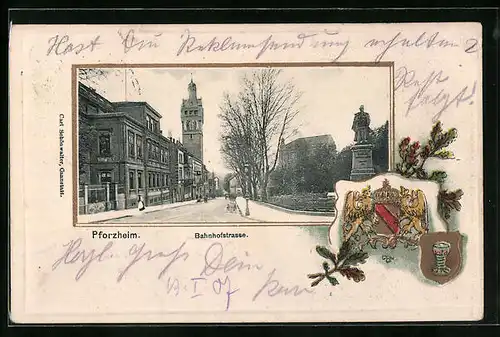 Hast Du Reklamsendung erhalten?
Rest
folgt!
Carl Schönwalter, Cannstatt.
Pforzheim.
Bahnhofstrasse.
Herzl. gratz Dein
13. I 07